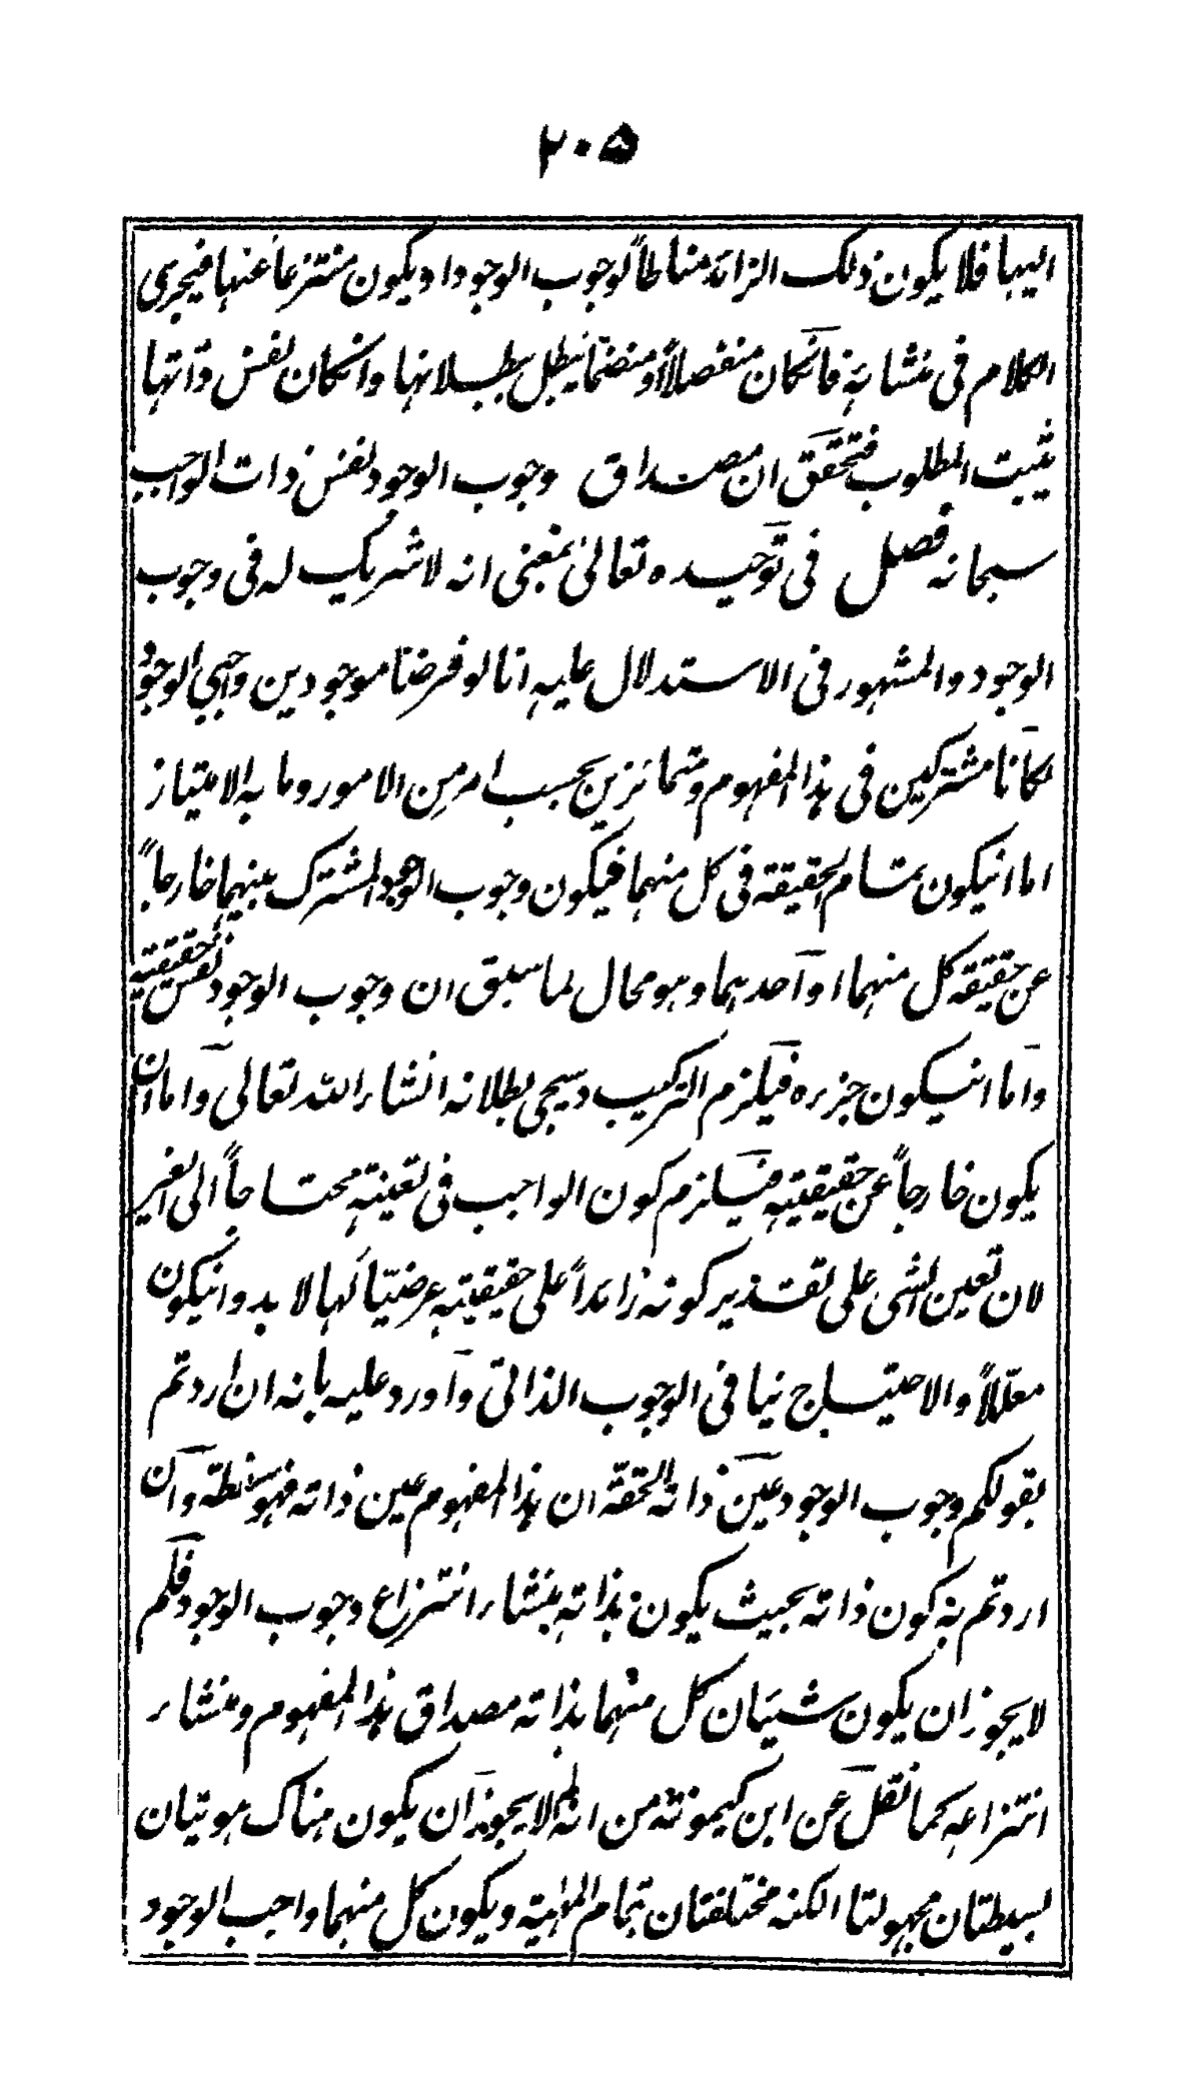 ٢٠٥
اليها فلا يكون ذلك الزائد مناطاً لوجوب الوجود او يكون منتزعاً عنها فيجرى
الكلام فى منشائه فانكان منفصلاً او منضماً يبطل ببطلانها وانكان نفس ذاتها
يثبت المطلوب فتحقق ان مصداق وجوب الوجود نفس ذات الواجب
سبحانه فصل فى توحيده تعالىٰ بمعنى انه لا شريك له فى وجوب
الوجود والمشهور فى الاستدلال عليه انا لو فرضنا موجودين واجبي الوجود
لكانا مشتركين فى هذا المفهوم ومتمائزين بحسب امر من الامور وما به الامتياز
اما انيكون تمام الحقيقة فى كل منهما فيكون وجوب الوجود المشترك بينهما خارجاً
عن حقيقة كل منهما او احدهما وهو محال لما سبق ان وجوب الوجود نفس حقيقته
واما انيكون جزره فيلزم التركيب وسيجى بطلانه انشاء الله تعالى واما ان
يكون خارجاً عن حقيقيته فيلزم كون الواجب فى تعينه محتاجاً الى الغير
لان تعين الشى على تقدير كونه زائداً على حقيقيته عرضياً لها لا بد وانيكون
معلّلاً والاحتياج ينافى الوجوب الذاتى واورد عليه بانه ان اردتم
بقولكم وجوب الوجود عين ذاته الحقة ان هذا المفهوم عين ذاته فهو سفسطة وان
اردتم به كون ذاته بحيث يكون بذاته منشاء انتزاع وجوب الوجود فلم
لا يجوز ان يكون شيئان كل منهما بذاته مصداق هذا المفهوم ومنشاء
انتزاعه كما نقل عن ابن كيمونة من انه لم لا يجوز ان يكون هناك هويتان
بسيطتان مجهولتا الكنه مختلفتان بتمام المهٰية ويكون كل منهما واجب الوجود